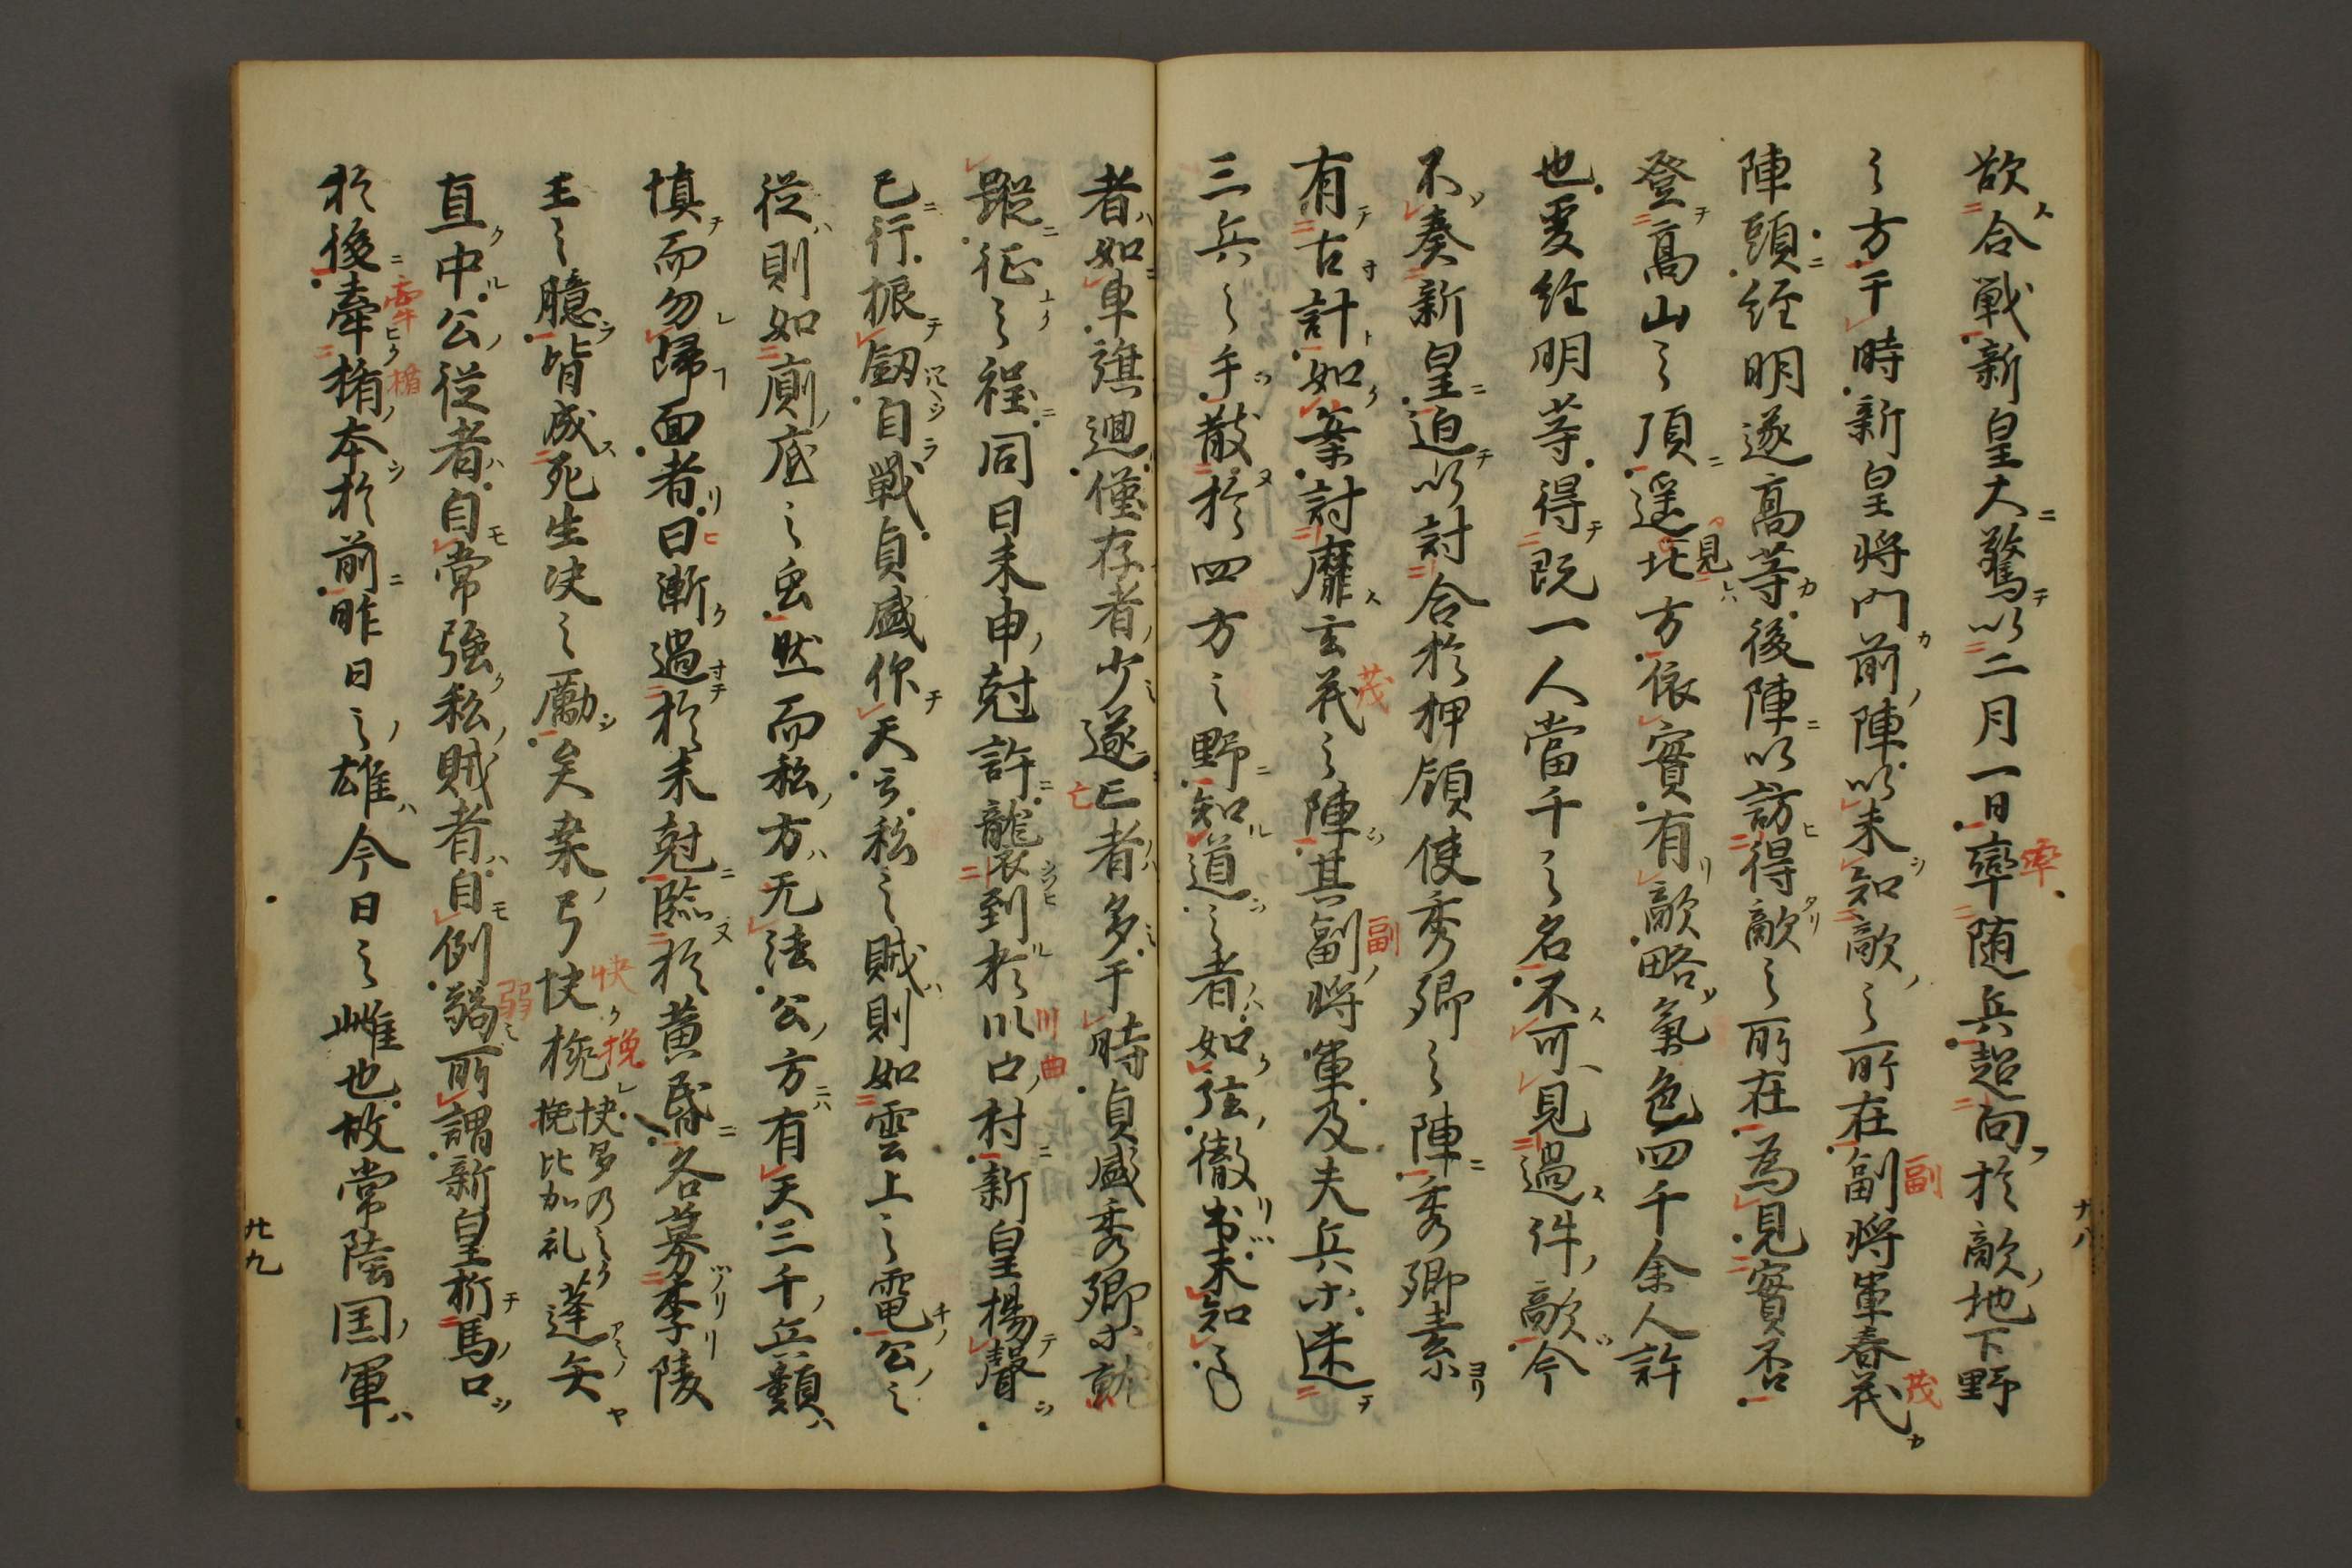 欲合戦新皇大驚以二月一日率随兵超向於敵地下野
之方于時新皇将門前陣以未知敵之所在副将軍春茂
陣頭経明遂高等後陣以訪得敵之所在為見實否
登髙山之頂遥見北方依實有敵略氣色四千余人許
也爰経明等得既一人當千之名不可見過件敵今
不奏新皇迫以討合於押領使秀郷之陣秀郷素
有古計如案討靡玄茂之陣其副将軍及夫兵等迷
三兵之手散於四方之野知道之者如弦徹出未知之
者如車旋廻僅存者少遂亡者多于時貞盛秀郷等就
蹤征之程同日未申尅許襲到於川口村新皇揚聲
已行振釼自戦貞盛仰天云私之賊則如雲上之電公之
従則如厠底之虫然而私方无法公方有天三千兵類
慎而勿帰面者日漸過於未尅臨於黄昏各募李陵
王之臆皆成死生决之勵矣桒弓快挽快多乃之久挽比加礼蓬矢
直中公従者自常強私賊者自例弱所謂新皇折馬口
於後牽楯本於前昨日之雄今日之雌也故常陸国軍
率
副
茂
茂
副
亡
川曲
快
挽
弱
牽
楯
廿八
廿九